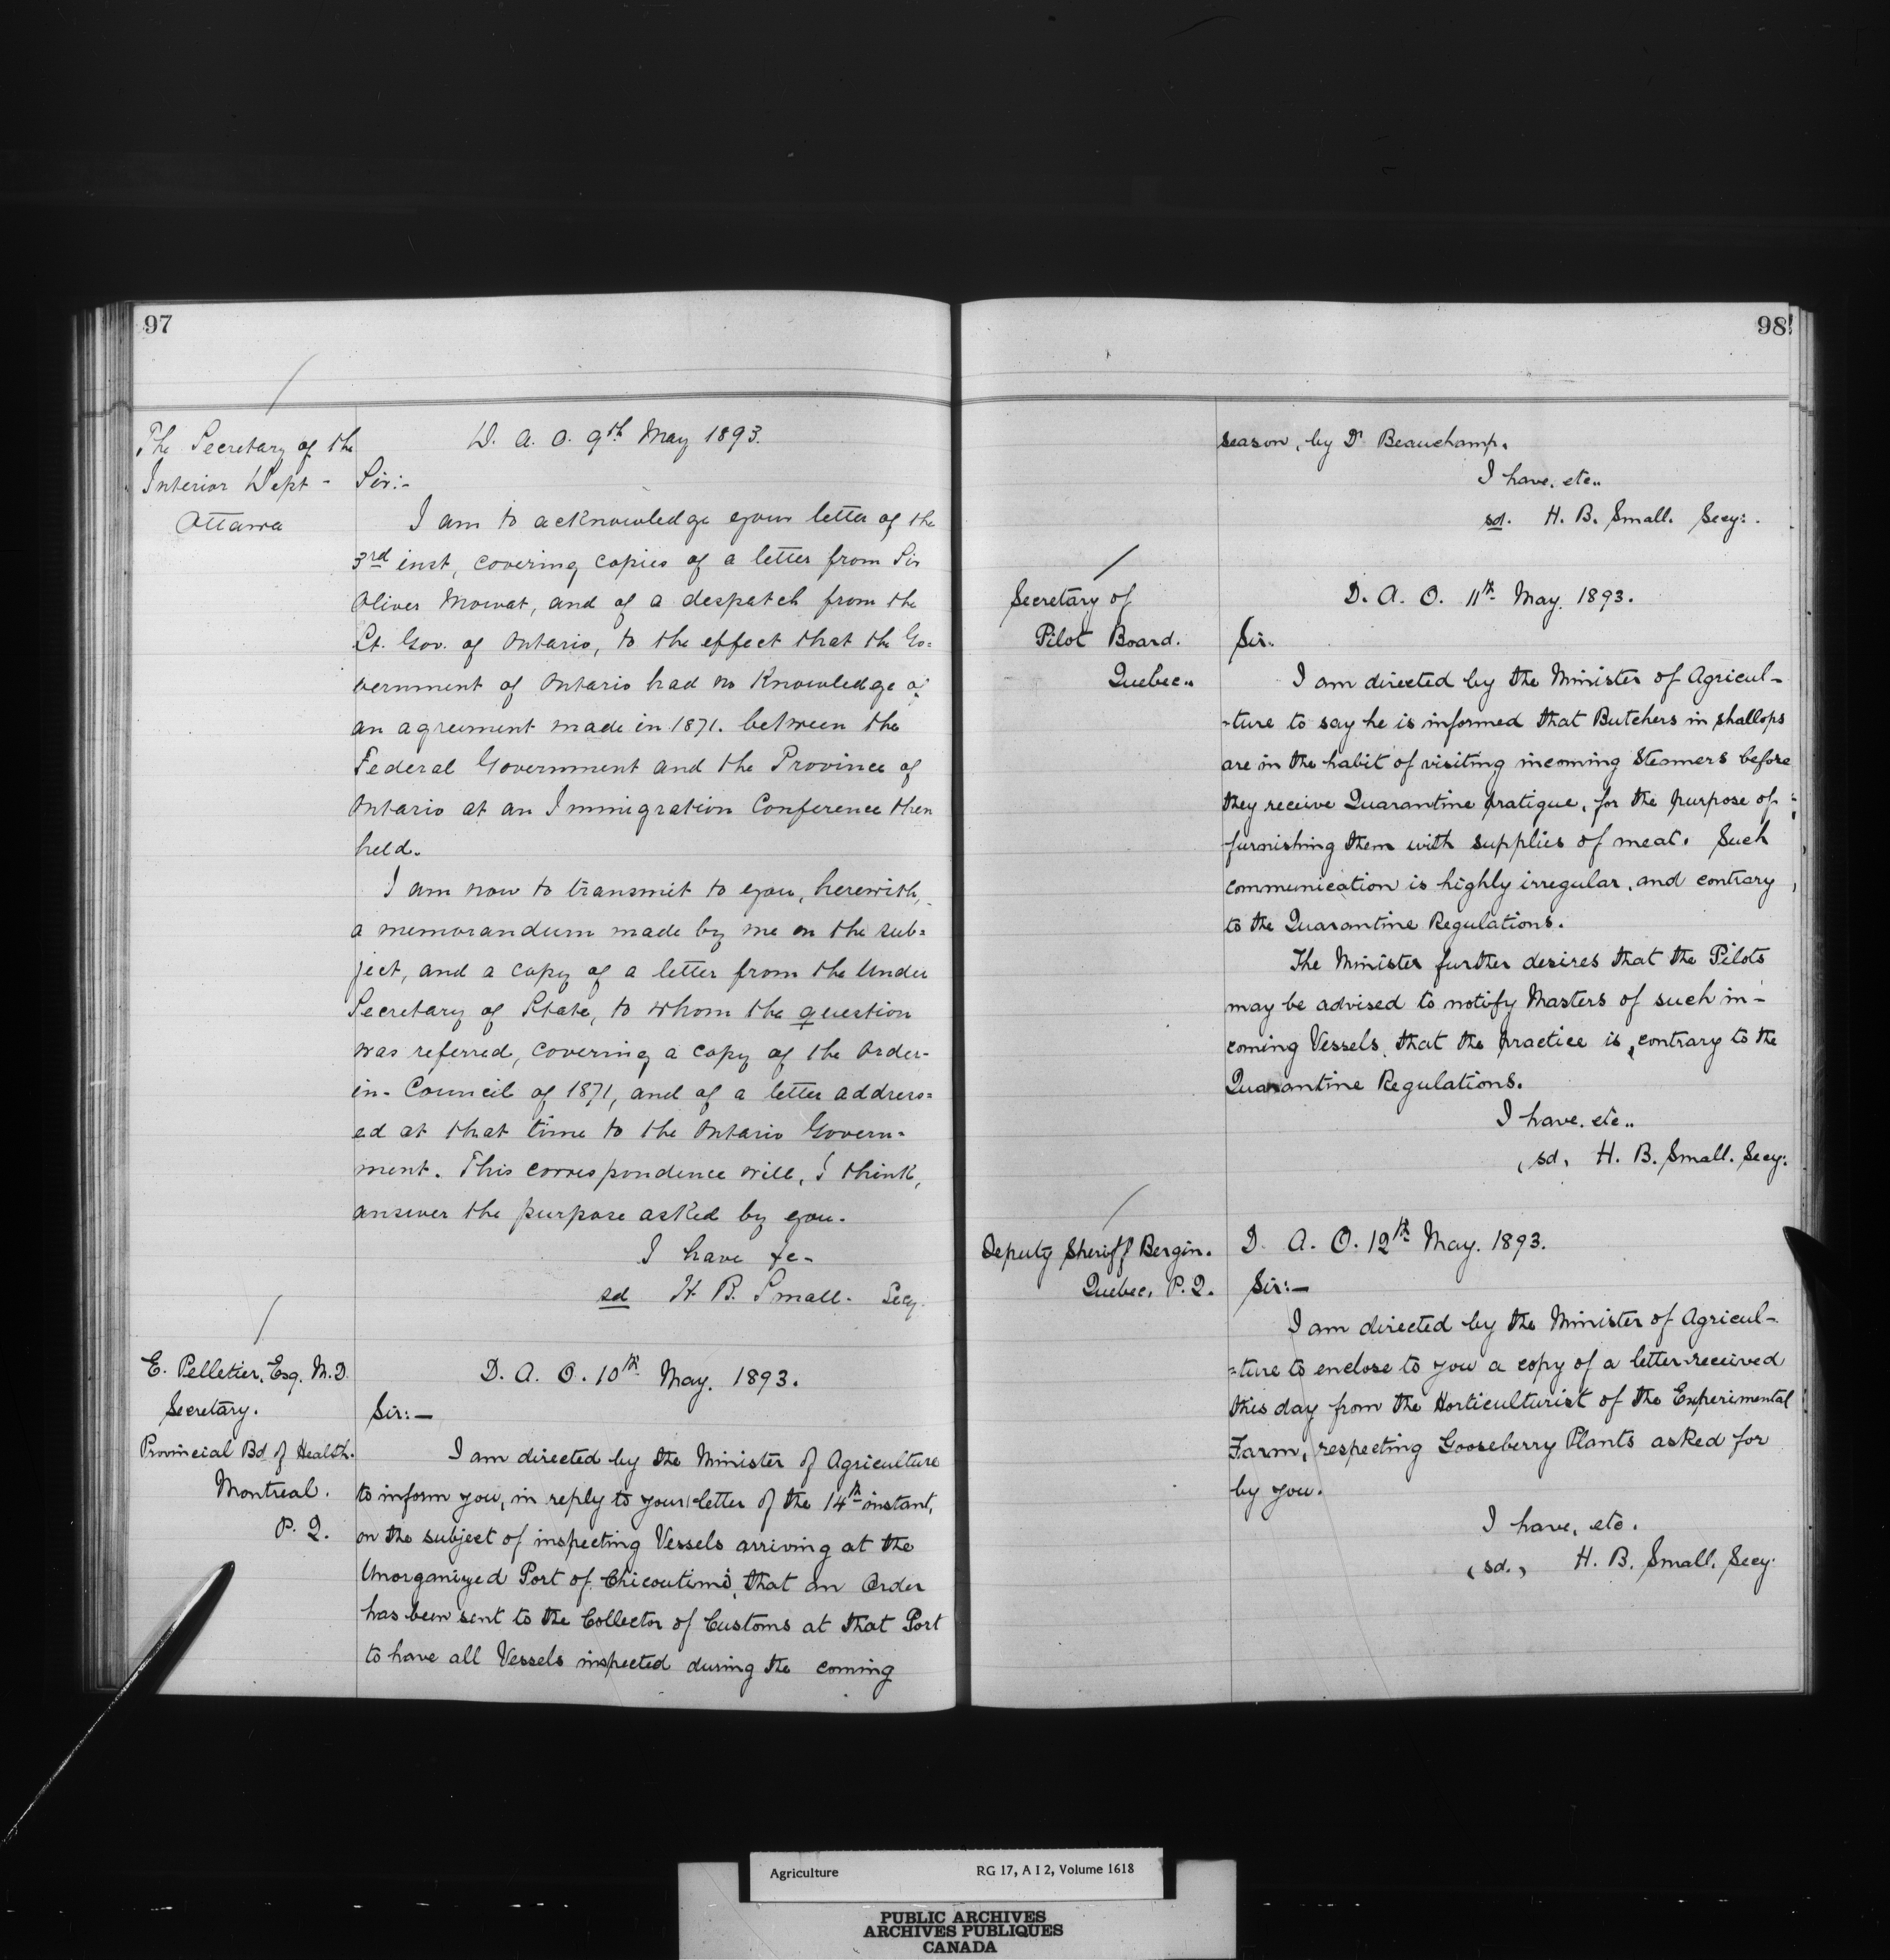 97
The Secretary of the
Interior Dept -
Ottawa
D. A. O. 9th May 1893.
Sir:-
I am to acknowledge your letter of the
3rd inst, covering copies of a letter from Sir
Oliver Mowat, and of a despatch from the
Lt. Gov. of Ontario, to the effect that the Go=
vernment of Ontario had no knowledge of
an agreement made in 1871. between the
Federal Government and the Province of
Ontario at an Immigration Conference then
held.
I am now to transmit to you, herewith,
a memorandum made by me on the sub=
ject, and a copy of a letter from the Under
Secretary of State, to whom the question
was referred, covering a copy of the Order-
in-Council of 1871, and of a letter address=
ed at that time to the Ontario Govern-
ment. This correspondence will, I think,
answer the purpose asked by you.
I have &c-
sd H. B. Small. Secy.
E. Pelletier, Esq. M.D.
Secretary.
Provincial Bd of Health.
Montreal.
P. Q.
D. A. O. 10th May. 1893.
Sir:—
I am directed by the Minister of Agriculture
to inform you, in reply to your letter of the 14th instant,
on the subject of inspecting Vessels arriving at the
Unorganized Port of Chicoutimi, that an Order
has been sent to the Collector of Customs at that Port
to have all Vessels inspected during the coming
98
season, by Dr Beauchamp.
I have, etc..
sd. H. B. Small. Secy:.
Secretary of
Pilot Board.
Quebec..
D. A. O. 11th May. 1893.
Sir:
I am directed by the Minister of Agricul-
-ture to say he is informed that Butchers in shallops
are in the habit of visiting incoming Steamers before
they receive Quarantine pratique, for the purpose of
furnishing them with supplies of meat. Such
communication is highly irregular, and contrary
to the Quarantine Regulations.
The Minister further desires that the Pilots
may be advised to notify Masters of such in-
coming Vessels, that the practice is, contrary to the
Quarantine Regulations.
I have, etc..
(sd, H. B. Small. Secy:
Deputy Sheriff Bergin.
Quebec, P. Q.
D. A. O. 12th May. 1893.
Sir:—
I am directed by the Minister of Agricul-
=ture to enclose to you a copy of a letter received
this day from the Horticulturist of the Experimental
Farm, respecting Gooseberry Plants asked for
by you.
I have, etc.
(sd.) H. B. Small. Secy.
Agriculture RG 17, A I 2, Volume 1618
PUBLIC ARCHIVES
ARCHIVES PUBLIQUES
CANADA